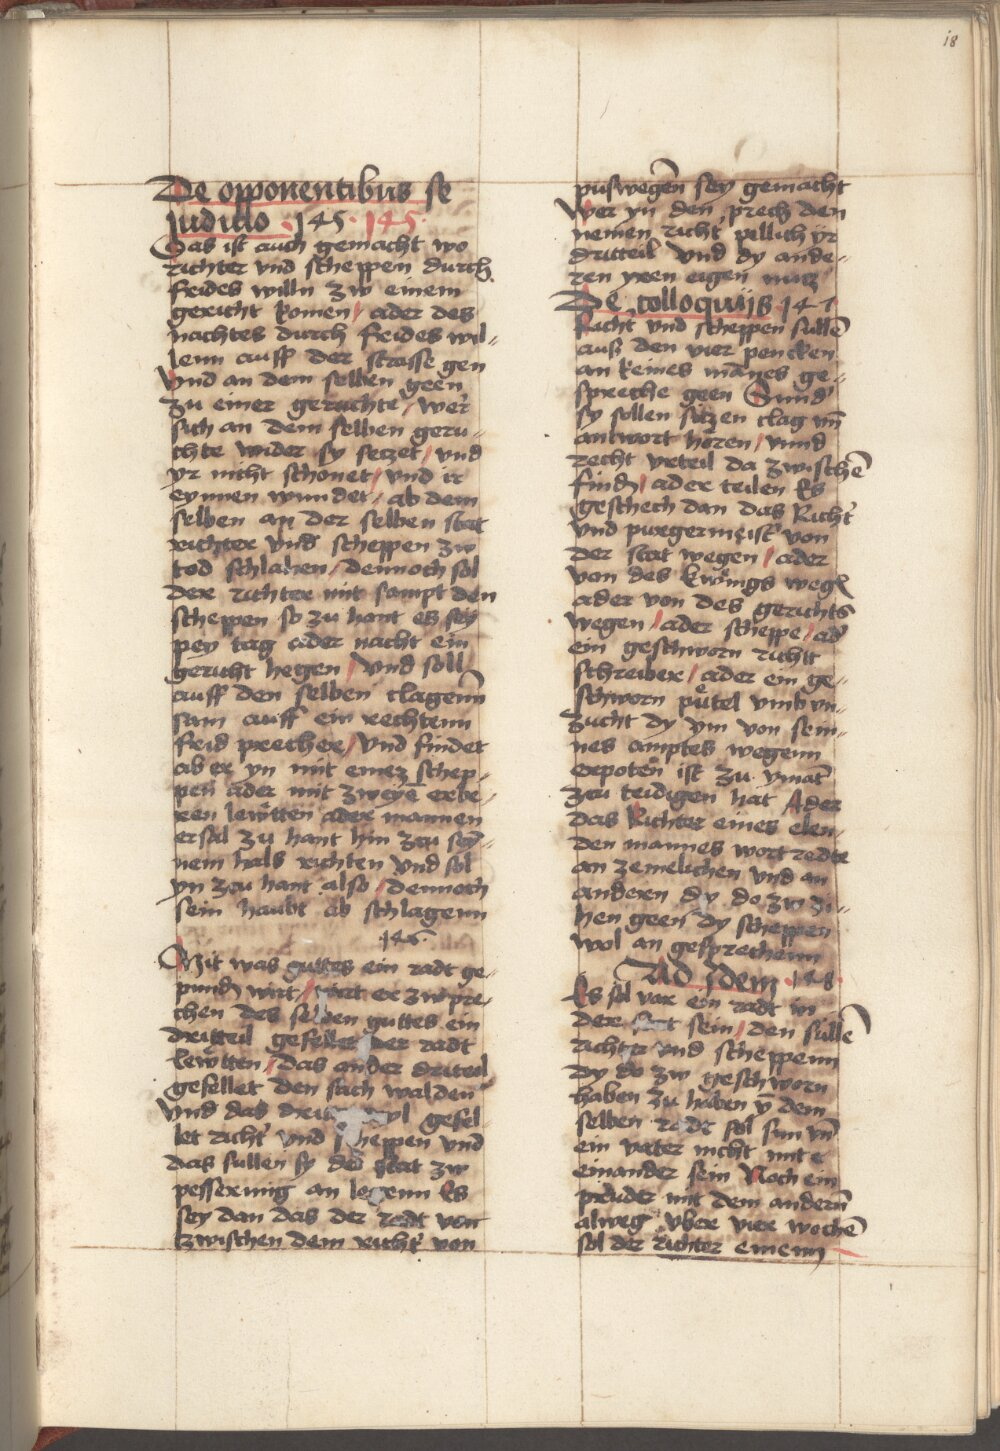 18
De opponentibus se
Judicio · 145 · 145 ·
Das ist auch gemacht wo
richter vnd scheppen durch
frides willn zw einem
gericht komen / ader des
nachtes durch frides wil-
lenn auff der strasse gen
Vnd an dem selben geen
zu einer geruchte / wer
sich an dem selben geru-
chte wider sy setzet / vnd
yr nicht schonet / vnd ir
eynnen wundet / ab dem
selben an der selben stat
richter vnd scheppen zw
tod schlahen / dennoch sol
der richter mit sampt den
scheppen so zu hant es sey
pey tag ader nacht ein
gericht hegen / vnd soll
auff den selben clagenn
sam auff ein rechtenn
frid precher / Vnd findet
ab er yn mit eines schep-
pen ader mit zweyē erbe-
ren lewtten ader mannen
er sal zu hant hin zcu sey-
nem hals richten vnd sol
yn zcu hant also / dennoch
sein haubt ab schlagenn
· 146 ·
Mit was guttes ein radt ge-
pund wirt / wirt er zw pre-
chen des selben guttes ein
dritteil gefellet der radt
lewtten / Das ander driteil
gefellet den sach walden
Vnd das yl gesel
let richt vnd scheppen vnd
das sullen sy der stat zw
pesserunig an legenn Es
sey dan das der radt von
tzwischen dem richt von
puswegen sey gemacht
Wer yn den prech den
nemen richt pillich yr
dritteil vnd dy ande-
ren yren eigen nutz
De colloquiis · 147
Richt vnd scheppen sullē
auß den vier pencken
an keines manes ge-
spreche geen Sund
sy sollen sitzen clag vn̄
antwort hören / vnnd
recht vrteil da zwischē
find / ader teilen Es
geschech dan das Richt
vnd purgermeist von
der stat wegen / ader
von des kwnigs weg
ader von des gerichts
wegen / ader scheppe / ad
ein geschworn richtt
schreiber / ader ein ge-
schworn putel vmb vn-
zucht dy ym von sein-
nes amptes wegenn
erpoten ist zu ymat
zcu teidigen hat Ader
das Richter eines elen-
den mannes wort redte
an zemelichen vnd an
anderen dy do zw zi-
hen geen dy scheppen
wol an gesprechenn
Ad Idem · 148 ·
Es sol vor ein radt in
der stat sein / den sullē
richter vnd scheppenn
dy do zw geschworn
haben zu haben v̄ dem
selben radt sol sun vn̄
ein vater nicht mit
einander sein Noch ein
pruder mit dem andern̄
alweg vber vier wochē
sol der richter einenn